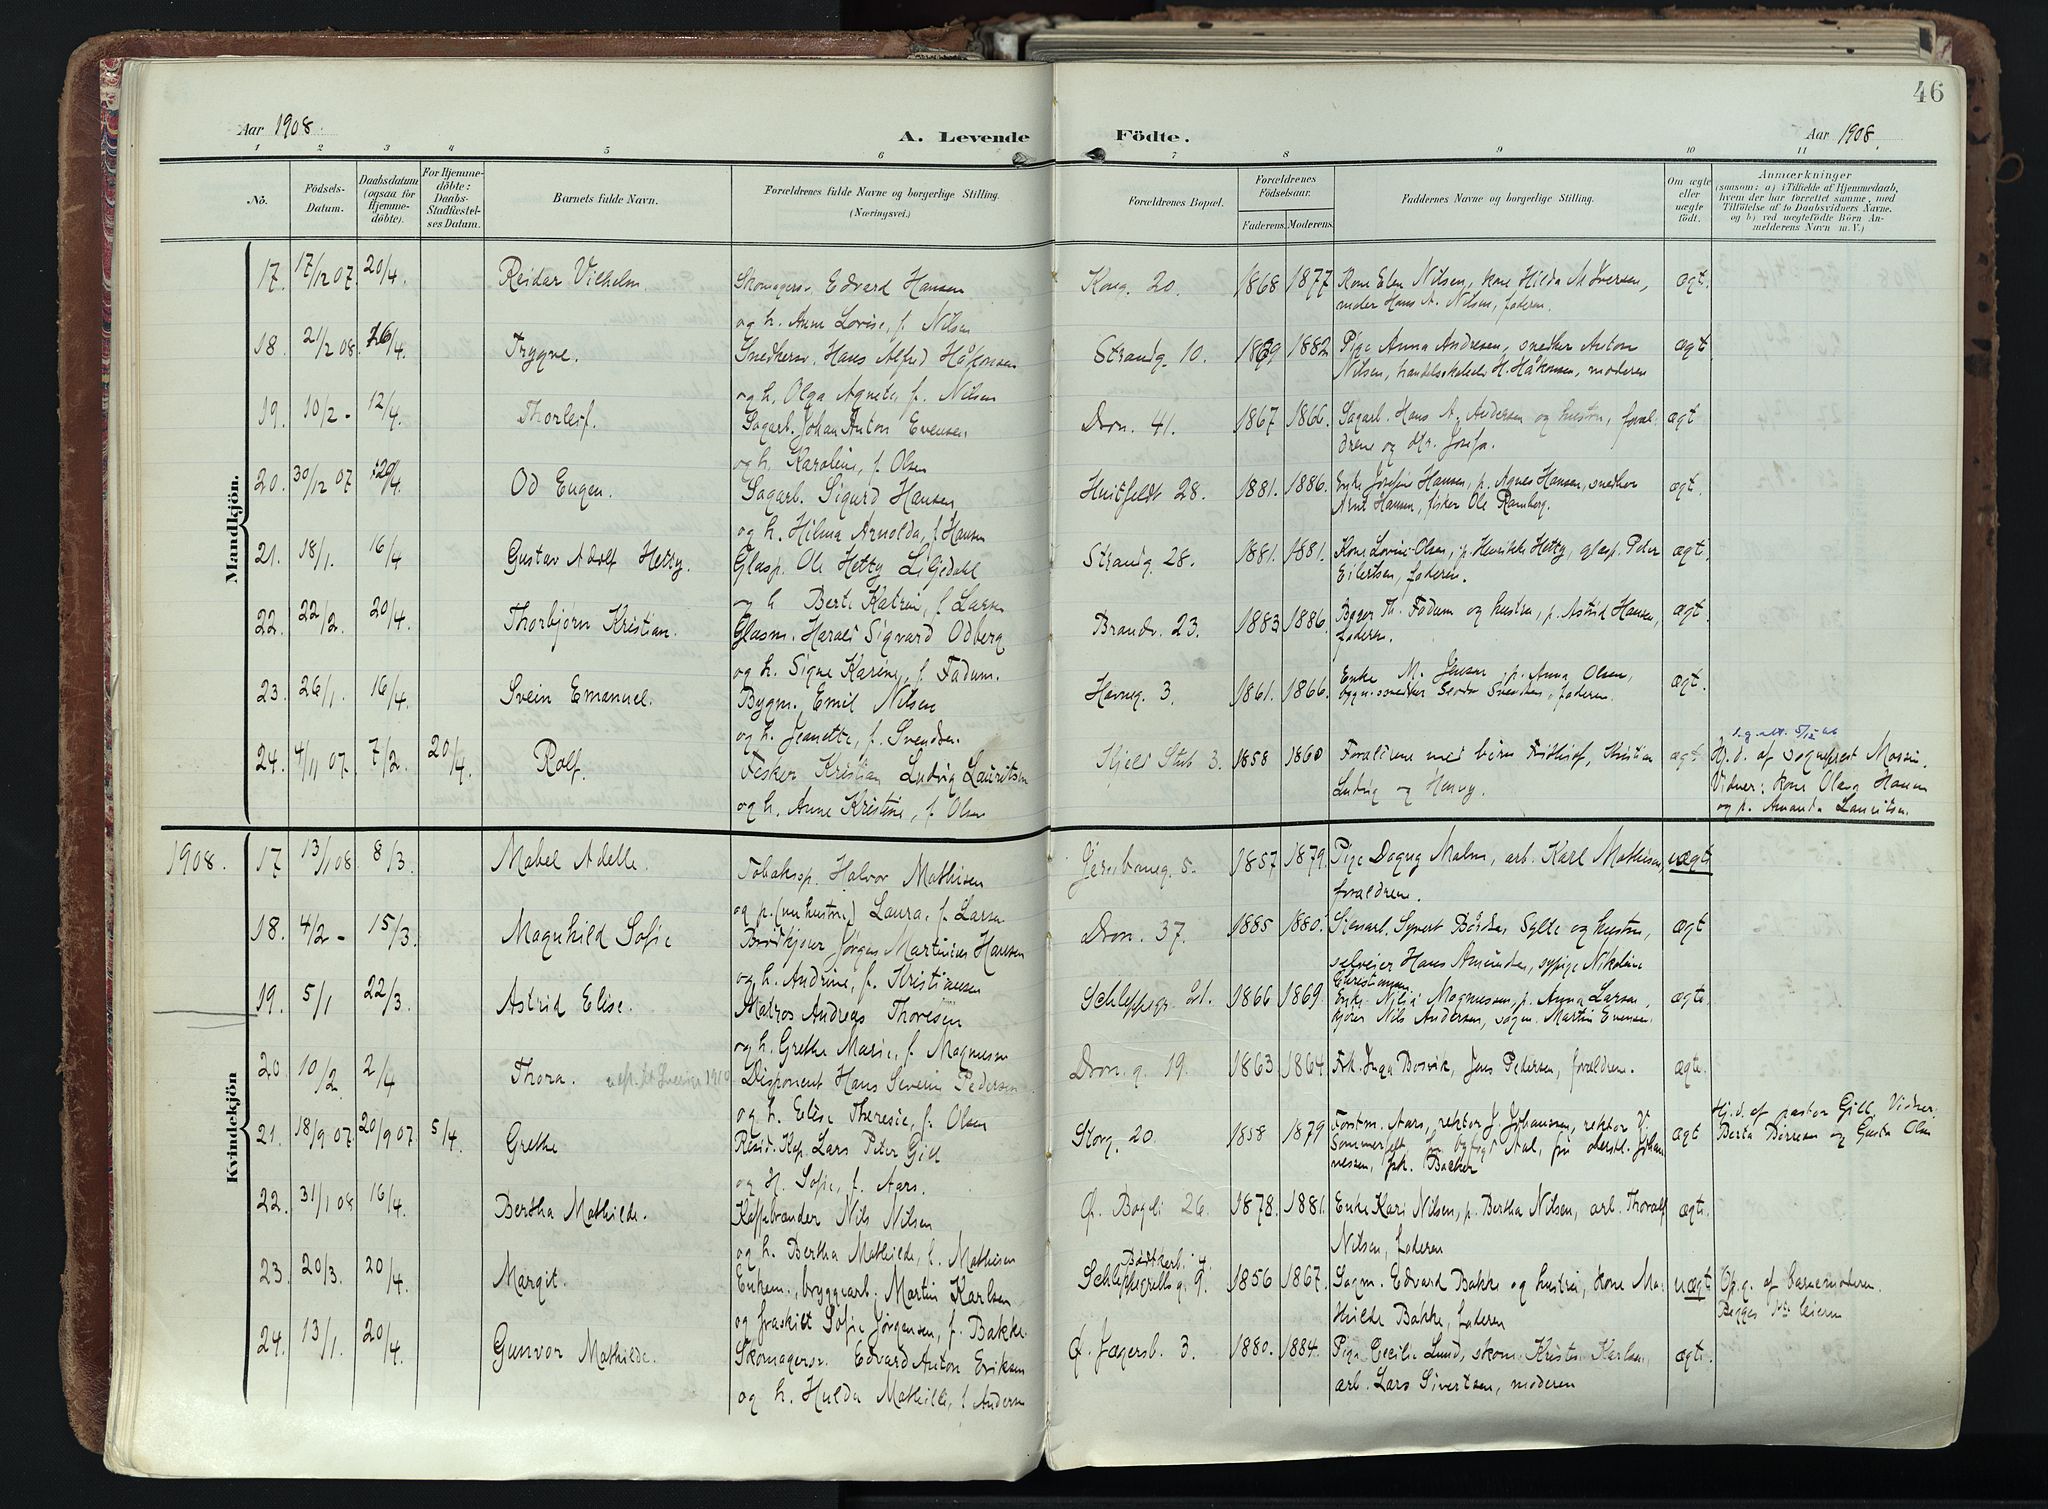 46
Aar 1908.
A. Levende Födte.
Aar 1908.
1 2 3 4 5 6 7 8 9 10 11
No.
Födsels-Datum.
Daabsdatum (ogsaa for Hjemme-döbte).
For Hjemme-döbte: Daabs-Stadfæstel-ses Datum.
Barnets fulde Navn.
Forældrenes fulde Navne og borgerlige Stilling.
(Næringsvei.)
Forældrenes Bopæl.
Forældrenes Födselsaar.
Faderens. Moderens.
Faddernes Navne og borgerlige Stilling.
Om ægte eller uægte födt.
Anmærkninger
(saasom: a) i Tilfælde af Hjemmedaab,
hvem der har forrettet samme, med
Tilföielse af to Daabsvidners Navne,
og b) ved uægtefödte Börn An-
melderens Navn m. V.)
Mandkjön.
17. 17/12 07. 20/4. Reidar Vilhelm. Skomagersv. Edvard Hansen Kong. 20. 1868 1877 Kone Elen Nilsen, kone Hilda M. Iversen, ægt.
og h. Anne Lovise, f. Nilsen
Hans A. Nilsen, faderen.
18. 21/2 08. 26/4. Trygve. Snedkersv. Hans Alfred Håkonsen Strandg. 10. 1882 Pige Anna Andresen, snedker Anton ægt
og h. Olga Agnete, f. Nilsen
Nilsen, H. Håkonsen, moderen
19. 10/2 - 12/4. Thorleif. Sagarb. Johan Anton Evensen Dron. 41. 1867 1866. Sagarb. Hans A. Andersen og hustru, foræl- ægt
og h. Karoline, f. Olsen
drene og dtr. Josefa.
20. 30/12 07 20/4. Od Eugen. Sagarb. Sigurd Hansen Huitfeldt 28. 1881. 1886. Enke Josefine Hansen, p. Agnes Hansen, snedker ægt.
og h. Hilma Arnolda, f. Hansen
Arnt Hansen, fisker Ole Ramberg.
21. 18/1. 16/4 Gustav Adolf Hetty. Glasp. Ole Hetty Liljedahl Strandg. 28. 1881. 1881. Kone Lovise Olsen, p. Henrikke Hetty, glasp. Peter ægt.
og h. Berte Katrine, f. Larsen
Eilertsen, faderen.
22. 22/2. 20/4. Thorbjørn Kristian. Glasm. Harald Sigvard Odberg Brandv. 23. 1883 1886. Th. Fadum og hustru, p. Astrid Hansen, ægt.
og h. Signe Karine, f. Fadum.
faderen.
23. 26/1. 16/4 Svein Emanuel. Bygm. Emil Nilsen Havneg. 3. 1861. 1866. Enke M. Jensen, p. Anna Olsen, ægt.
og h. Jeanette, f. Svendsen.
faderen.
24. 4/11 07. 7/2. 20/4. Rolf. Fisker Kristian Ludvig Lauritsen Kjeld Stub 3. 1858 1860 Forældrene med børn Fridthjof, Kristian ægt Hj. d. af sogneprest
og h. Anne Kristine, f. Olsen
Ludvig og Henry.
Vidner: kone Olava Hansen
og p. Amanda Lauritsen.
Kvindekjön
1908. 17 13/1 08. 8/3. Mabel Adelle. Tobaksp. Halvor Mathisen 5. 1857 1879. Pige Dagny Malm, arb. Karl Mathisen, uægte
og p. (nu hustru) Laura, f. Larsen
forældrene.
18. 4/2 - 15/3. Magnhild Sofie Brødkjører Jørgen Martinius Hansen Dron. 37. 1885 1880. Stenarb. Syvert Sylte og hustru, ægt
og h. Andrine, f. Kristiansen
selveier Hans Amundsen, sypige Nikoline
Christiansen.
19. 5/1 22/3. Astrid Elise. Matros Andreas Thoresen Schleppegr. 21. 1866 1869. Enke Magnussen, p. Anna Larsen, ægte.
og h. Grethe Marie, f. Magnussen
kjører Nils Andersen, Martin Evensen.
20 10/2. 2/4 Thora. Disponent Hans Severin Pedersen Dron. g. 19. 1863 1864 Frk. Inga Bosvik, Jens Pedersen, forældrene. ægte.
og h. Elise Theresie, f. Olsen
21. 18/9 07. 20/9 07 5/4. Grethe Resid. Kap. Lars Peter Gill Storg. 20. 1858 1879 Forstm. Aars, rektor J. Johanssen, rektor V. ægt Hj. d. af pastor Gill. Vidner:
og H. Sofie, f. Aars.
Sommerfelt, byfogt Aal, fru oberstl. Johan-
nessen, frk. Backer
Berta Børresen og Gusta Olsen
22. 31/1 08 16/4. Bertha Mathilde. Kaffebrænder Nils Nilsen Ø. Bogeli 26. 1878. 1881. Enke Kari Nilsen, p. Bertha Nilsen, arb. Thoralf ægte.
og h. Bertha Mathilde, f. Mathisen
Nilsen, faderen
23. 20/3. 20/4. Margit. Enkem., bryggearb. Martin Karlsen Schleppegrells g. 9. 4 1856 1867. Sagm. Edvard Bakke og hustru, kone Ma- uægt Op. g. af barnemoderen.
og fraskilt Sofie Jørgensen, f. Bakke.
thilde Bakke, faderen
Begges
24. 13/1. 20/4 Gunvor Mathilde. Skomagersv. Edvard Anton Eriksen Ø. Jægersb. 3. 1880. 1884. Pige Cecilie Lund, skom. Karlsen, ægt.
og h. Hulda Mathilde, f. Andersen
arb. Lars Sivertsen, moderen